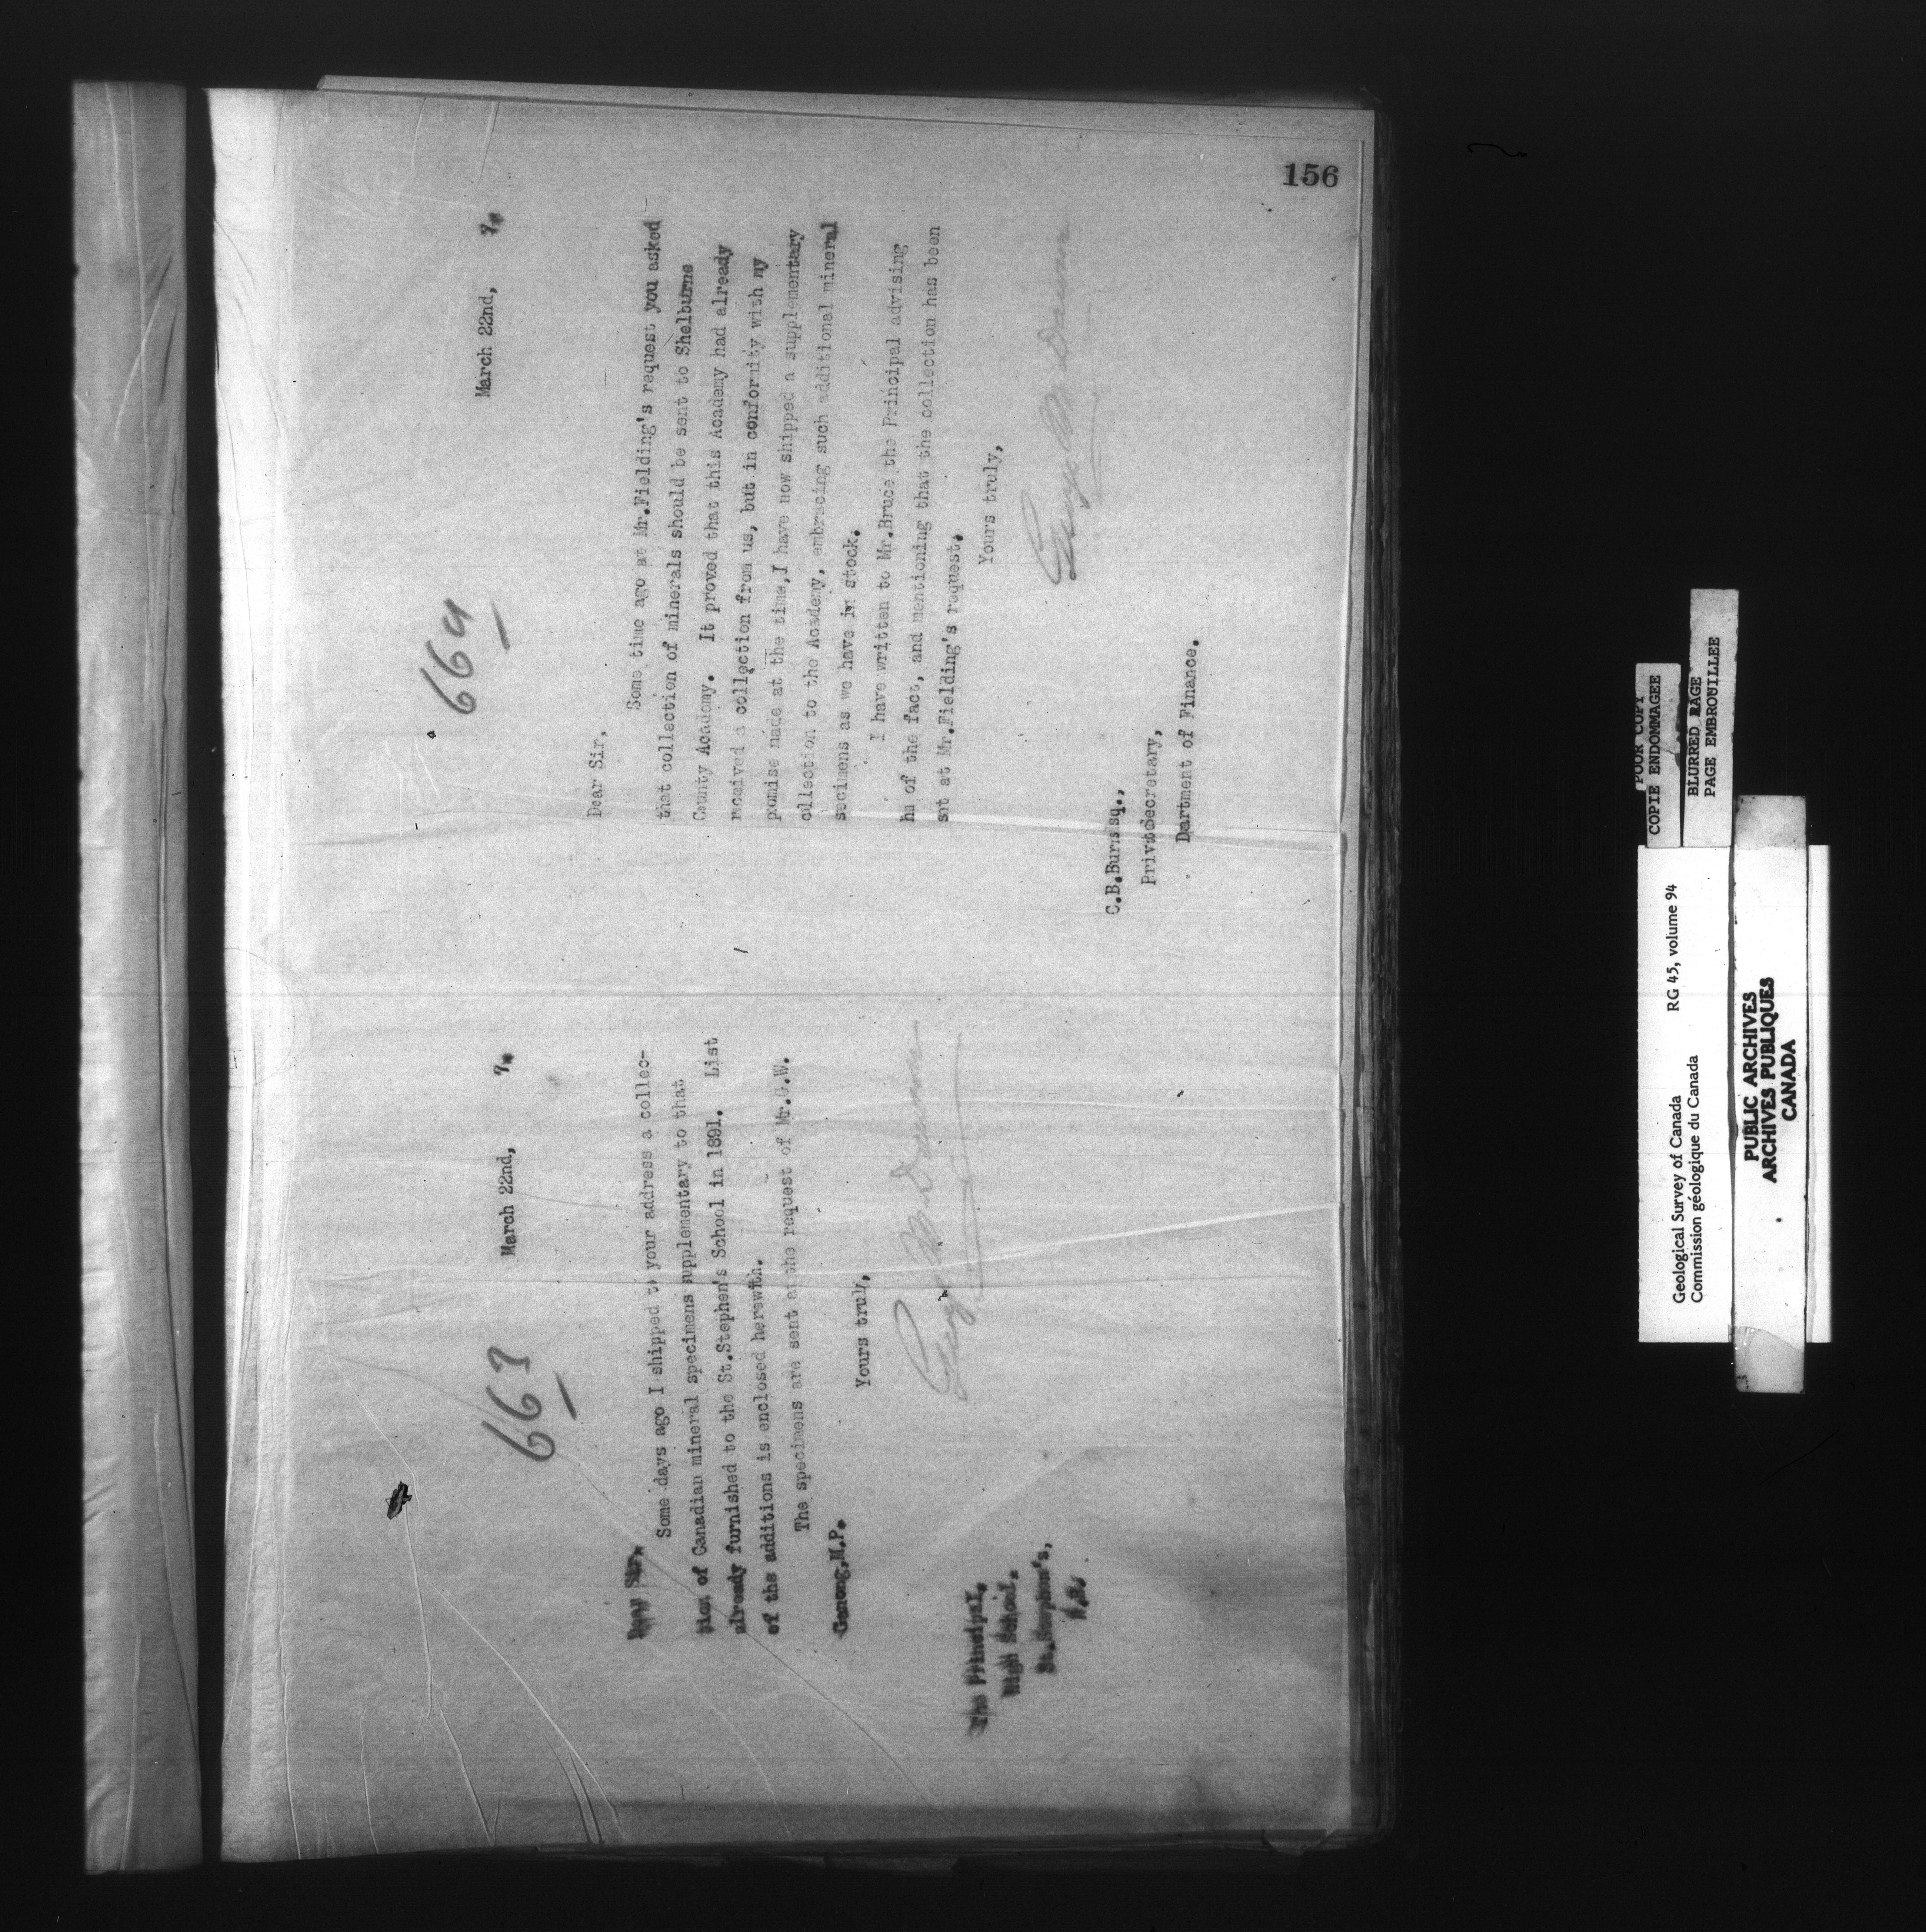 663
March 22nd, 7.
Dear Sir,
Some days ago I shipped to your address a collec-
tion of Canadian mineral specimens supplementary to that
already furnished to the St.Stephen's School in 1891. List
of the additions is enclosed herewith.
The specimens are sent at the request of Mr.G.W.
Ganong,M.P.
Yours truly,
The Principal,
High School,
St.Stephen's,
N.B.
664
March 22nd, 7.
Dear Sir,
Some time ago at Mr.Fielding's request you asked
that collection of minerals should be sent to Shelburne
County Academy. It proved that this Academy had already
received a collection from us, but in conformity with my
pomise made at the time,I have now shipped a supplementary
ollection to the Academy, embracing such additional mineral
secimens as we have in stock.
I have written to Mr.Bruce the Principal advising
hm of the fact, and mentioning that the collection has been
snt at Mr.Fielding's request.
Yours truly,
C.B.Burnsq.,
Privatecretary,
Dartment of Finance.
156
POOR COPY
COPIE ENDOMMAGEE
BLURRED PAGE
PAGE EMBROUILLEE
Geological Survey of Canada RG 45, volume 94
Commission géologique du Canada
PUBLIC ARCHIVES
ARCHIVES PUBLIQUES
CANADA